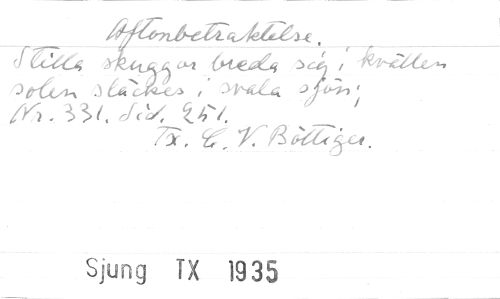 Aftonbetraktelse.
Stilla skuggor breda sig i kvällen
solen släckes i svala sjön;
Nr. 331. Sid. 251.
Tx. C. V. Böttiger.
Sjung TX 1935